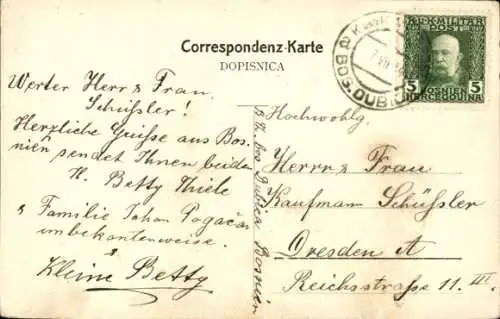 Correspondenz-Karte
DOPISNICA
K.u.K. MILITÄR
POST
5 5
BOSNIEN
HERCEGOVINA
BOS. DUB
Werter Herr & Frau
Schüssler!
Herzliche Grüsse aus Bos-
nien sendet Ihnen beiden
H. Betty Thiele
& Familie Johan Pogačar
unbekanterweise.
Kleine Betty
Dubica Bosnien
Hochwohlg.
Herrn & Frau
Kaufmann Schüssler
Dresden A
Reichsstrasse 11. III.